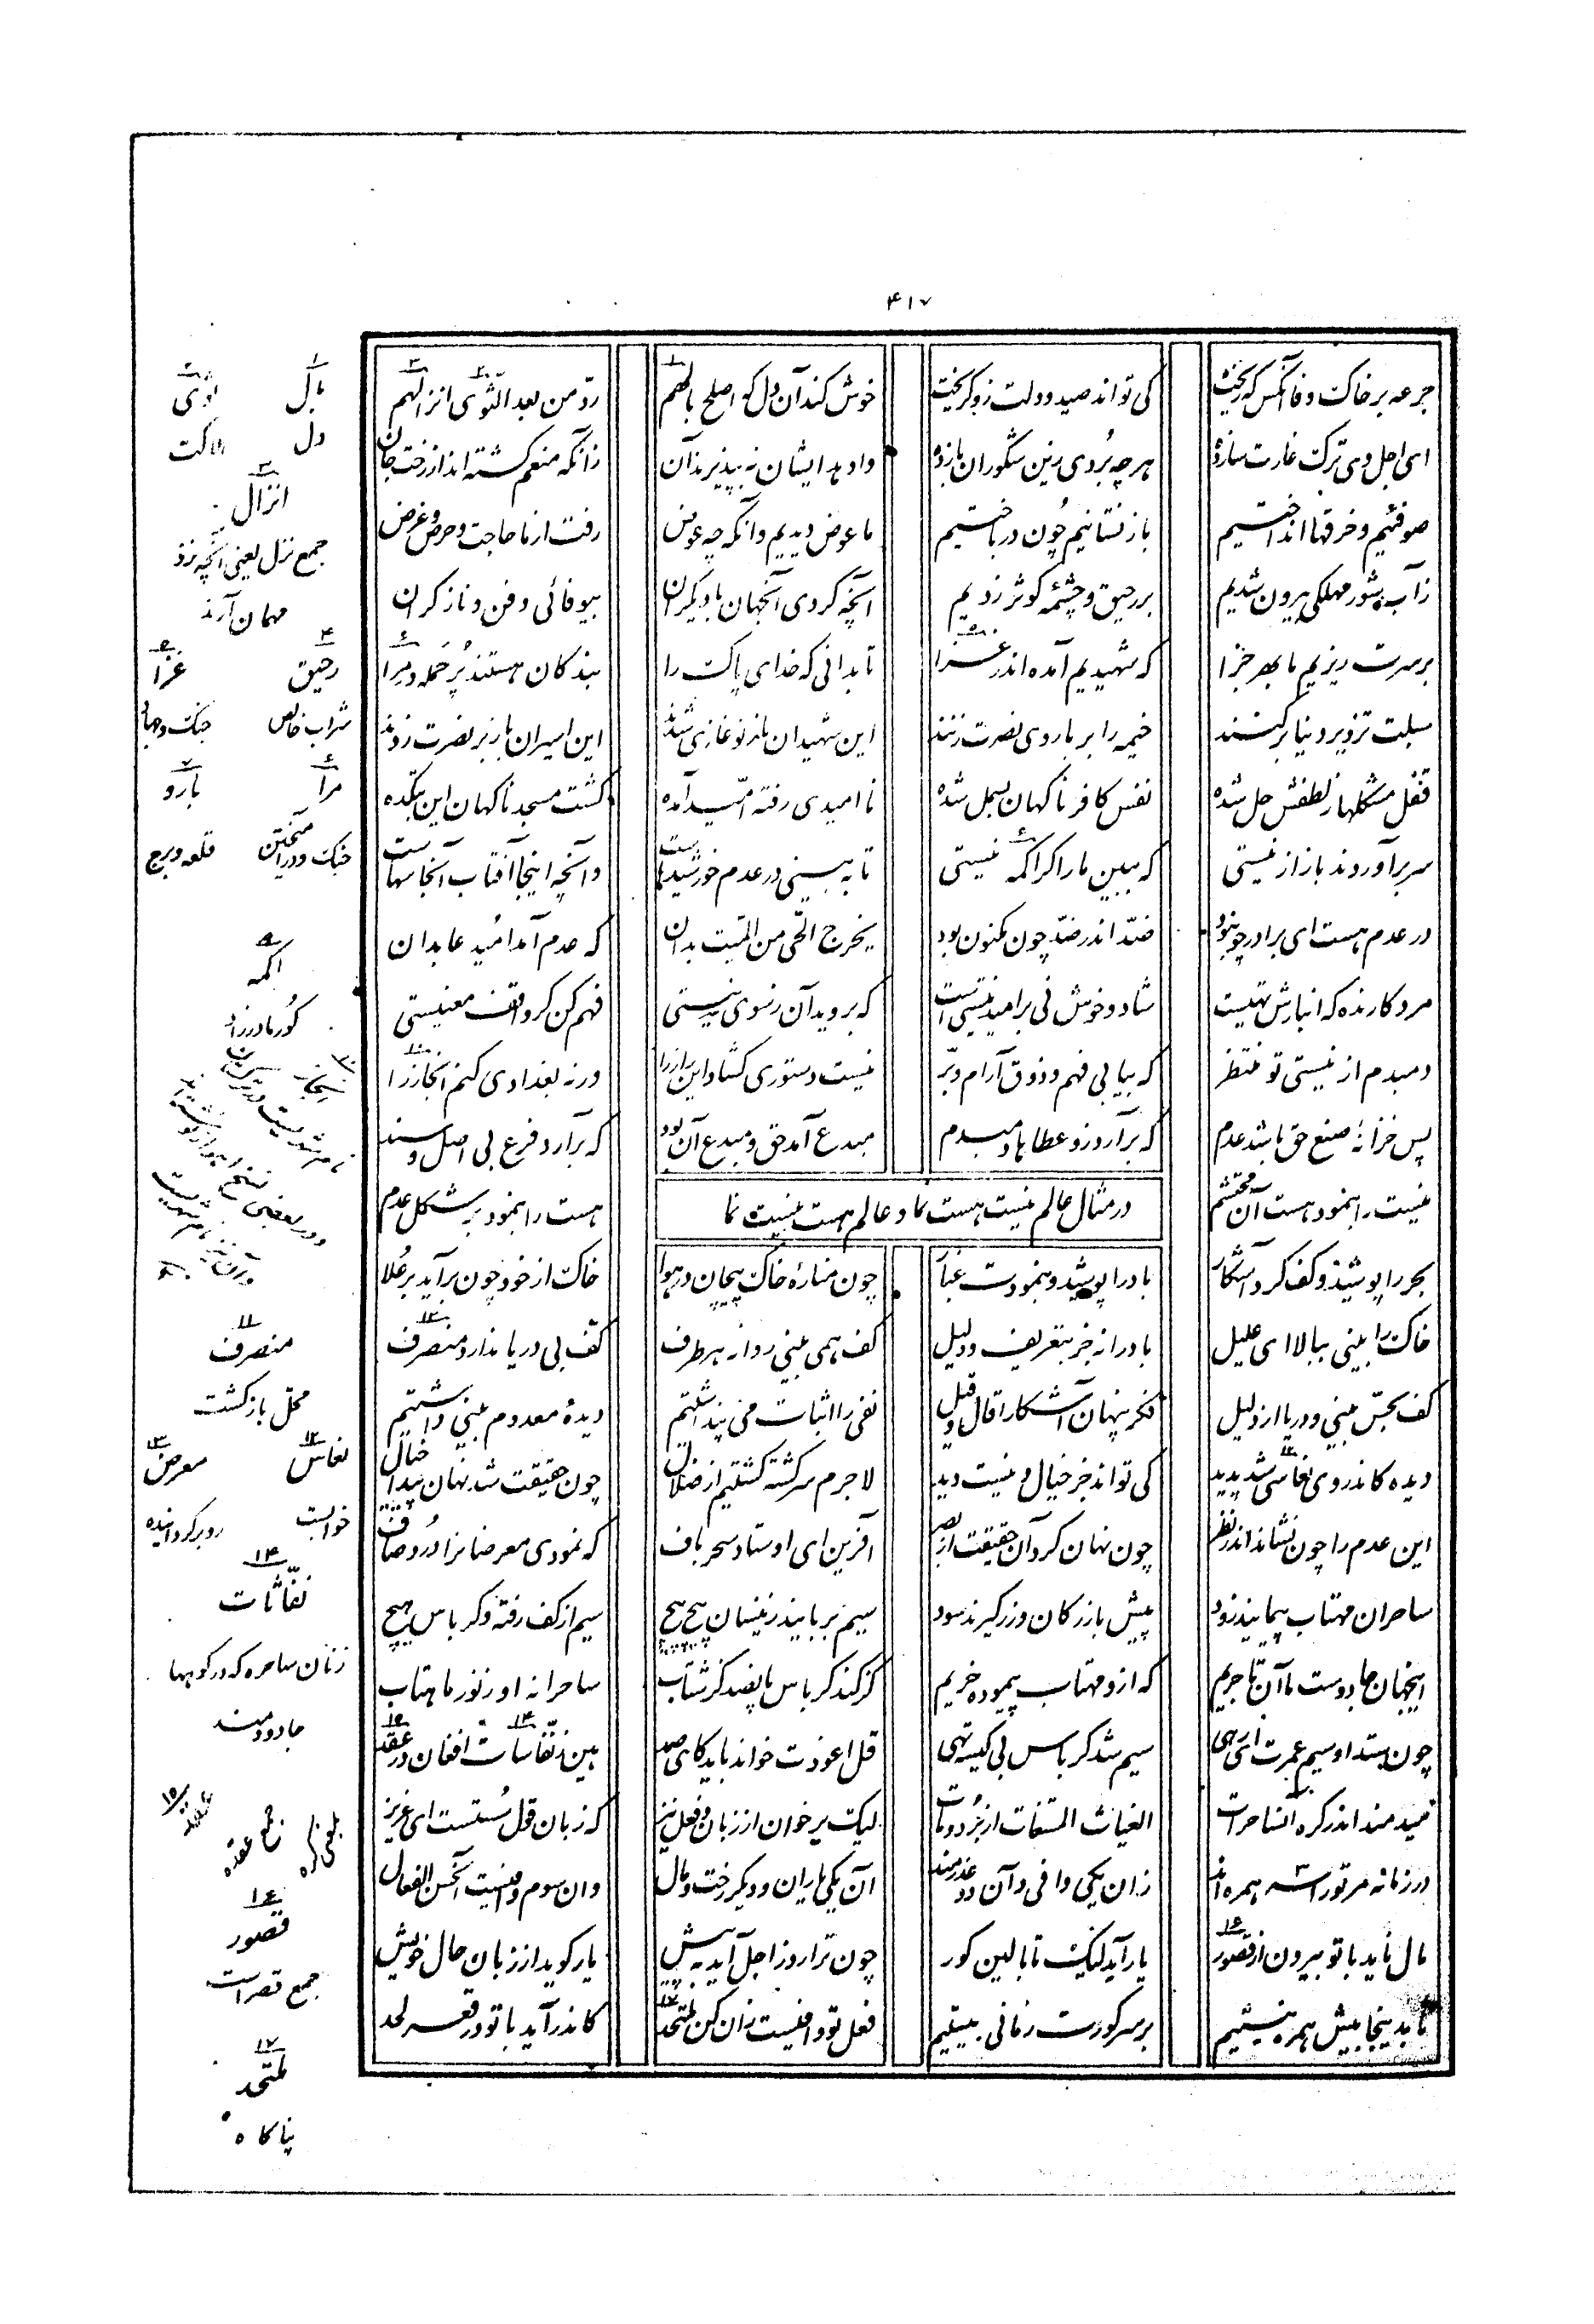 ۴۱۷
جرعه بر خاک وفا آنکس که ریخت
کی تواند صید دولت زو گریخت
خوش کند آن دل که اصلح بالهم
ردّ من بعد التّوی انزالهم
ای اجل وی ترک غارت ساز ده
هرچه بُردی زین شکوران باز ده
وا دهد ایشان نه بپذیرند آن
زانکه منعم گشته اند از رخت جان
صوفئیم و خرقها انداختیم
باز نستانیم چُون درباختیم
ما عوض دیدیم وآنگه چه عوض
رفت از ما حاجت و حرص و غرض
زآب شور مهلکی بیرون شدیم
بر رحیق و چشمه کوثر زدیم
آنچه کردی آنجهان با دیگران
بیوفائی و فن و ناز گران
بر سرت ریزیم ما بهر جزا
که شهیدیم آمده اندر غزا
تا بدانی که خدای پاک را
بندگان هستند پُر حمله و مرا
سبلت تزویر دنیا بر کنند
خیمه را بر باروی نصرت زنند
این شهیدان باز نو غازی شدند
این اسیران باز بر نصرت زدند
قفل مشکلها ز لطفش حل شده
نفس کافر ناگهان بسمل شده
نا امیدی رفته امّید آمده
گشت مسجد ناگهان این بتکده
سر برآوردند باز از نیستی
که ببین ما را گر اکمه نیستی
تا به بینی در عدم خورشیدهاست
وآنچه اینجا آفتاب آنجا سهاست
در عدم هست ای برادر چون بود
ضدّ اندر ضدّ چون مکنون بود
یخرج الحّی من المّیت بدان
که عدم آمد اُمید عابدان
مرد کارنده که انبارش تهیست
شاد و خوش نی بر امید نیستی است
که بروید آن ز سوی نیستی
فهم کن گر واقف معنیستی
دمبدم از نیستی تو منتظر
که بیابی فهم و ذوق آرام و برّ
نیست دستوری گشاد این راز را
ورنه بغدادی کنم انجاز را
پس خزانهٔ صنع حق باشد عدم
که برآرد زو عطاها دمبدم
مبدع آمد حق و مبدع آن بود
که برآرد فرع بی اصل و سند
در مثال عالم نیست هست نما و عالم هست نیست نما
نیست را بنمود هست آن محتشم
هست را بنمود بر شکل عدم
بحر را پوشید و کف کرد آشکار
باد را پوشید و بنمودت غبار
چون منارهٔ خاک پیچان در هوا
خاک از خود چون برآید بر عُلا
خاک را بینی ببالا ای علیل
باد را نه جز بتعریف و دلیل
کف همی بینی روانه هر طرف
کفّ بی دریا ندارد منصرف
کف بحسّ بینی و دریا از دلیل
فکر پنهان آشکارا قال و قیل
نفی را اثبات می پنداشتیم
دیدهٔ معدوم بینی داشتیم
دیده کاندر وی نعاسی شد پدید
کی تواند جز خیال و نیست دید
لاجرم سرگشته گشتیم از ضلال
چون حقیقت شد نهان پیدا خیال
این عدم را چون نشاند اندر نظر
چون نهان کرد آن حقیقت از بصر
آفرین ای اوستاد سحر باف
که نمودی معرضانرا دُرد صاف
ساحران مهتاب پیمایند زود
پیش بازرگان و زر گیرند سود
سیم بربایند زینسان پیچ پیچ
سیم از کف رفته و کرباس هیچ
اینجهان جادوست ما آن تاجریم
که ازو مهتاب پیموده خریم
گز کند کرباس پانصد گز شتاب
ساحرانه او ز نور ماهتاب
چون ستد او سیم عمرت ای رهی
سیم شد کرباس نی کیسه تهی
قل اعوذت خواند باید کای صمد
هین ز نفّاثات افغان در عقد
میدمند اندر گره آن ساحرات
الغیاث المستغاث از بُرد و مات
لیک بر خوان از زبان فعل نیز
که زبان قول سُستست ای عزیز
در زمانه مر ترا سه همره اند
زان یکی وافی و آن دو عذرمند
آن یکی یاران و دیگر رخت و مال
وان سوم وافیست آن حسن الفعال
مال ناید با تو بیرون از قصور
یار آید لیک تا بالین گور
چون ترا روز اجل آید به پیش
یار گوید از زبان حال خویش
تا بدینجا بیش همره نیستیم
بر سر گورت زمانی بیستیم
فعل تو وافیست زان کن ملتحد
کاندر آید با تو در قعر لحد
۱ بال
دل
۲ توی
هلاکت
۳ انزال
جمع نزل یعنی آنچه نزد
مهمان آرند
۴ رحیق
شراب خالص
۵ غزا
جنگ و جهاد
۶ مرا
جنگ و درآمیختن
۷ بارو
قلعه و برج
۸ اکمه
کور مادرزاد
۱۱
منصرف
محل بازگشت
۱۲ نعاس
خوابست
۱۳ معرض
روبرگرداننده
۱۴
نفّاثات
زنان ساحره که در گرهها
جادو دمند
۱۵ عقد
جمع عقده
یعنی گره
۱۶
قصور
جمع قصر است
۱۷
ملتحد
پناگاه